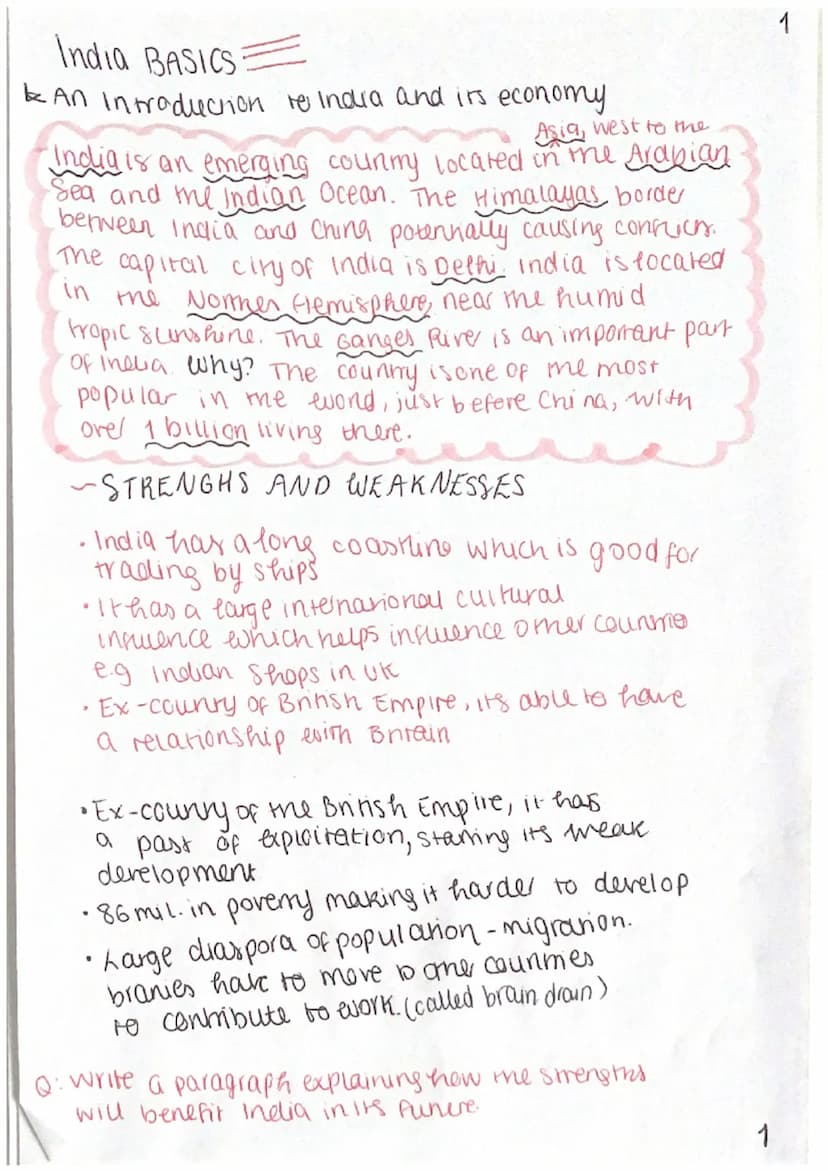 1
India BASICS
An Introduction to India and its economy
Asia, west to the
India is an emerging country located in the Arabian
Sea and the Indian Ocean. The Himalayas border
between India and China potentially causing conflicts.
The capital city of India is Delhi. India is located
in the Northern Hemisphere, near the humid
tropic sunshine. The Ganges River is an important part
of India. Why? The country is one of the most
popular in the world, just before China, with
over 1 billion living there.
~STRENGHS AND WEAKNESSES
• India has a long coastline which is good for
trading by ships
• It has a large international cultural
influence which helps influence other countries
e.g Indian shops in UK
• Ex-country of British Empire, its able to have
a relationship with Britain
• Ex-country of the British Empire, it has
a past of exploitation, starting its weak
development
• 86 mil. in poverty making it harder to develop
• Large diaspora of population - migration.
have to move to other countries
to contribute to work. (called brain drain)
Q: Write a paragraph explaining how the strengths
will benefit India in its future.
1